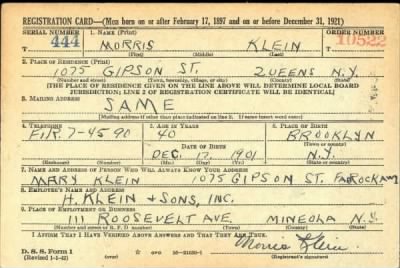 REGISTRATION CARD—(Men born on or after February 17, 1897 and on or before December 31, 1921)
SERIAL NUMBER 1. NAME (Print) ORDER NUMBER
444 MORRIS KLEIN 10522
(First) (Middle) (Last)
2. PLACE OF RESIDENCE (Print)
1075 GIPSON ST. QUEENS N.Y.
(Number and street) (Town, township, village, or city) (County) (State)
[THE PLACE OF RESIDENCE GIVEN ON THE LINE ABOVE WILL DETERMINE LOCAL BOARD
JURISDICTION; LINE 2 OF REGISTRATION CERTIFICATE WILL BE IDENTICAL]
3. MAILING ADDRESS
SAME
(Mailing address if other than place indicated on line 2. If same insert word same)
4. TELEPHONE 5. AGE IN YEARS 6. PLACE OF BIRTH
FAR. 7-4590 40 BROOKLYN
DATE OF BIRTH (Town or county)
DEC. 17. 1901 N.Y.
(Exchange) (Number) (Mo.) (Day) (Yr.) (State or country)
7. NAME AND ADDRESS OF PERSON WHO WILL ALWAYS KNOW YOUR ADDRESS
MARY KLEIN 1075 GIPSON ST. FAR ROCKAWAY
8. EMPLOYER'S NAME AND ADDRESS
H. KLEIN & SONS, INC.
9. PLACE OF EMPLOYMENT OR BUSINESS
111 ROOSEVELT AVE. MINEOLA N.Y.
(Number and street or R. F. D. number) (Town) (County) (State)
I AFFIRM THAT I HAVE VERIFIED ABOVE ANSWERS AND THAT THEY ARE TRUE.
D. S. S. Form 1
(Revised 1-1-42) (over) 16-21630-1 Morris Klein
(Registrant's signature)